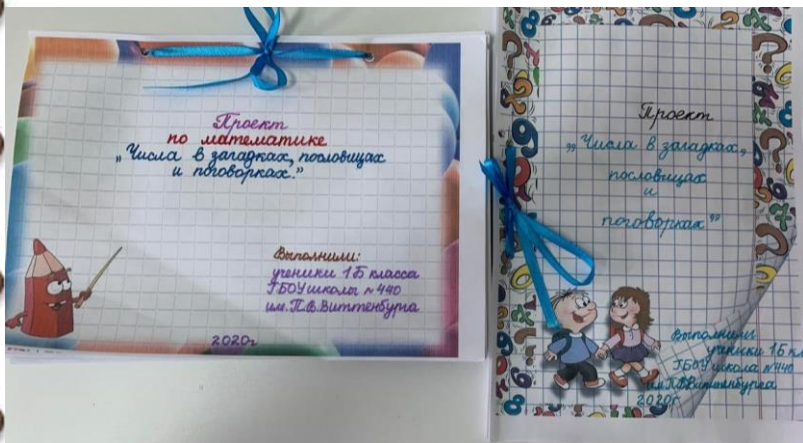 Проект
по математике
„Числа в загадках, пословицах
и поговорках."
Выполнили:
ученики 1Б класса
ГБОУ школы №440
им. П.В.Виттенбурга
2020г
Проект
„Числа в загадках,
пословицах
и
поговорках"
Выполнили
ученики 1Б кл
ГБОУ школа №440
им П.В.Виттенбурга
2020г.